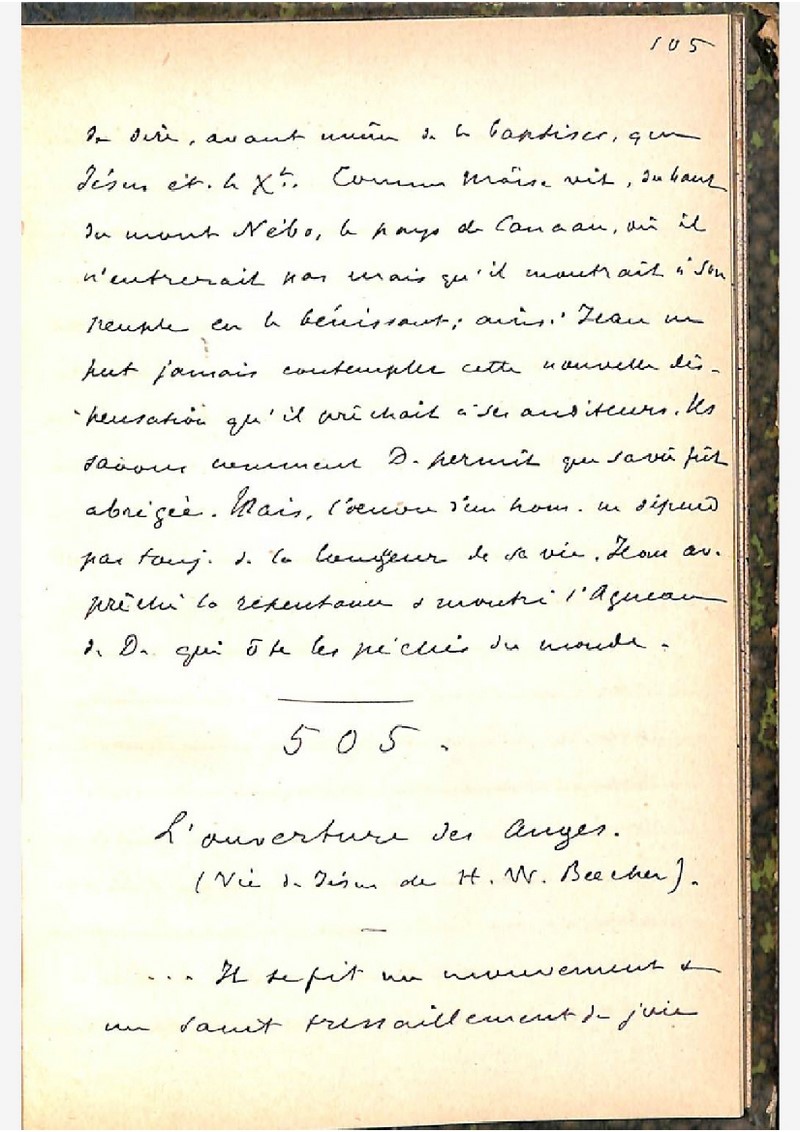 105
de dire, avant même de le baptiser, que
Jésus ét. le Xt. Comme Moïse vit, du haut
du mont Nébo, le pays de Canaan, où il
n'entrerait pas mais qu'il montrait à son
peuple en le bénissant; ainsi Jean ne
put jamais contempler cette nouvelle dis-
pensation qu'il prêchait à ses auditeurs. Ns
savons comment D. permit que sa vie fût
abrégée. Mais, l'oeuvre d'un hom. ne dépend
pas touj. de la longueur de sa vie. Jean av.
prêché la repentance & montré l'Agneau
de D. qui ôte les péchés du monde.
505.
L'ouverture des Anges.
(Vie de Jésus de H. W. Beecher).
... Il se fit un mouvement &
un saint tressaillement de joie